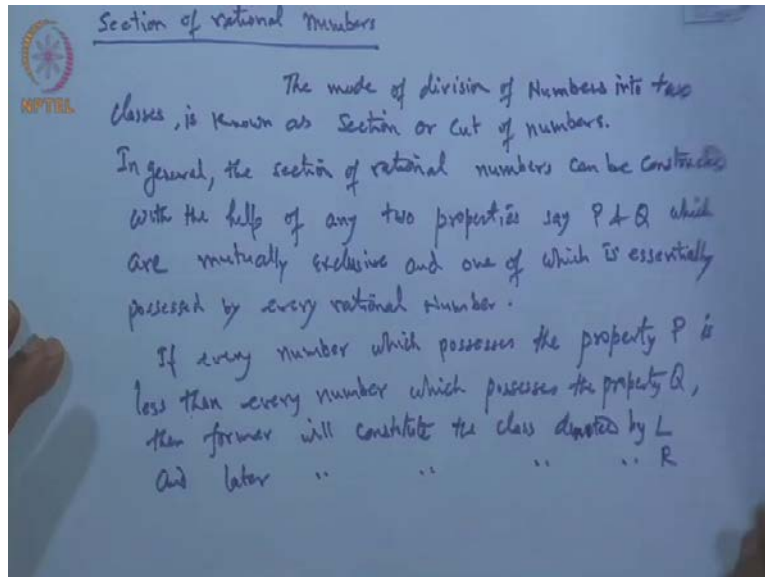 Section of rational numbers
NPTEL
The mode of division of Numbers into two
classes, is known as Section or Cut of numbers.
In general, the section of rational numbers can be constructed
with the help of any two properties say P & Q which
are mutually exclusive and one of which is essentially
possessed by every rational number.
If every number which possesses the property P is
less than every number which possesses the property Q,
then former will constitute the class denoted by L
and later " " " " R